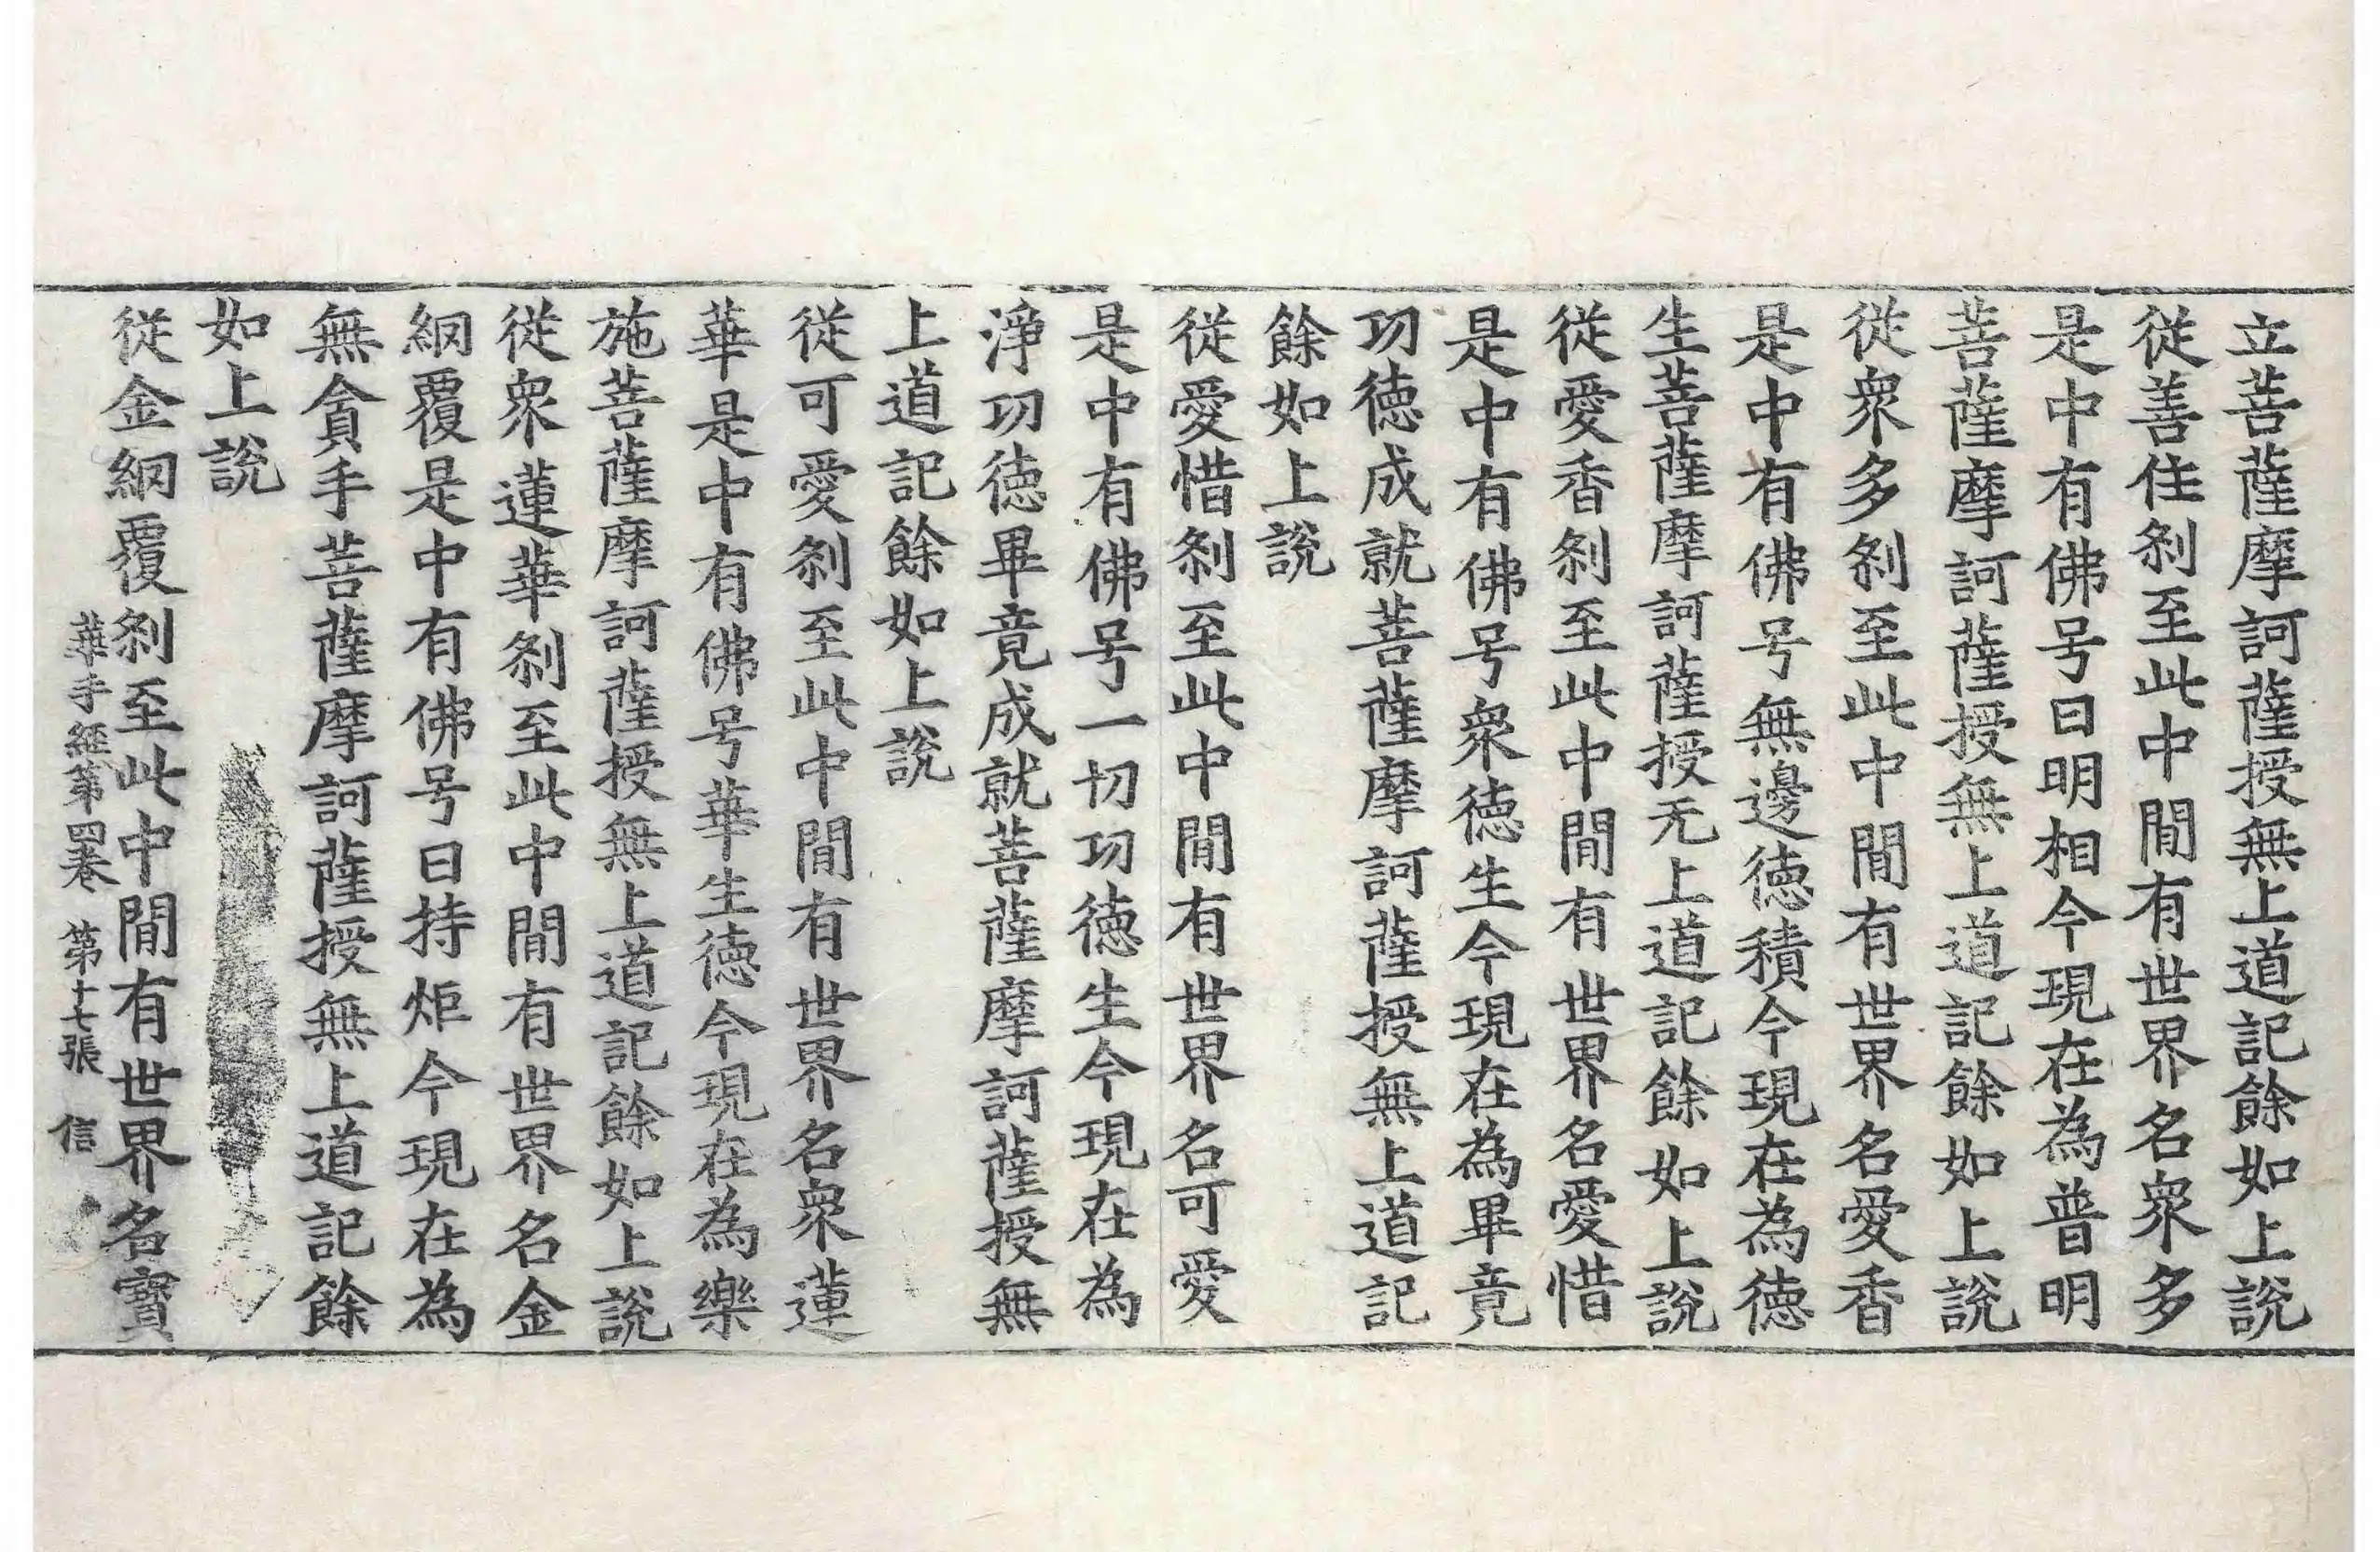 立菩薩摩訶薩授無上道記餘如上說
從善住刹至此中間有世界名衆多
是中有佛号曰明相今現在為普明
菩薩摩訶薩授無上道記餘如上說
從衆多刹至此中間有世界名愛香
是中有佛号無邊德積今現在為德
生菩薩摩訶薩授无上道記餘如上說
從愛香刹至此中間有世界名愛惜
是中有佛号衆德生今現在為畢竟
功德成就菩薩摩訶薩授無上道記
餘如上說
從愛惜刹至此中間有世界名可愛
是中有佛号一切功德生今現在為
淨功德畢竟成就菩薩摩訶薩授無
上道記餘如上說
從可愛刹至此中間有世界名衆蓮
華是中有佛号華生德今現在為樂
施菩薩摩訶薩授無上道記餘如上說
從衆蓮華刹至此中間有世界名金
網覆是中有佛号曰持炬今現在為
無貪手菩薩摩訶薩授無上道記餘
如上說
從金網覆刹至此中間有世界名寶
華手經第四卷 第十七張 信